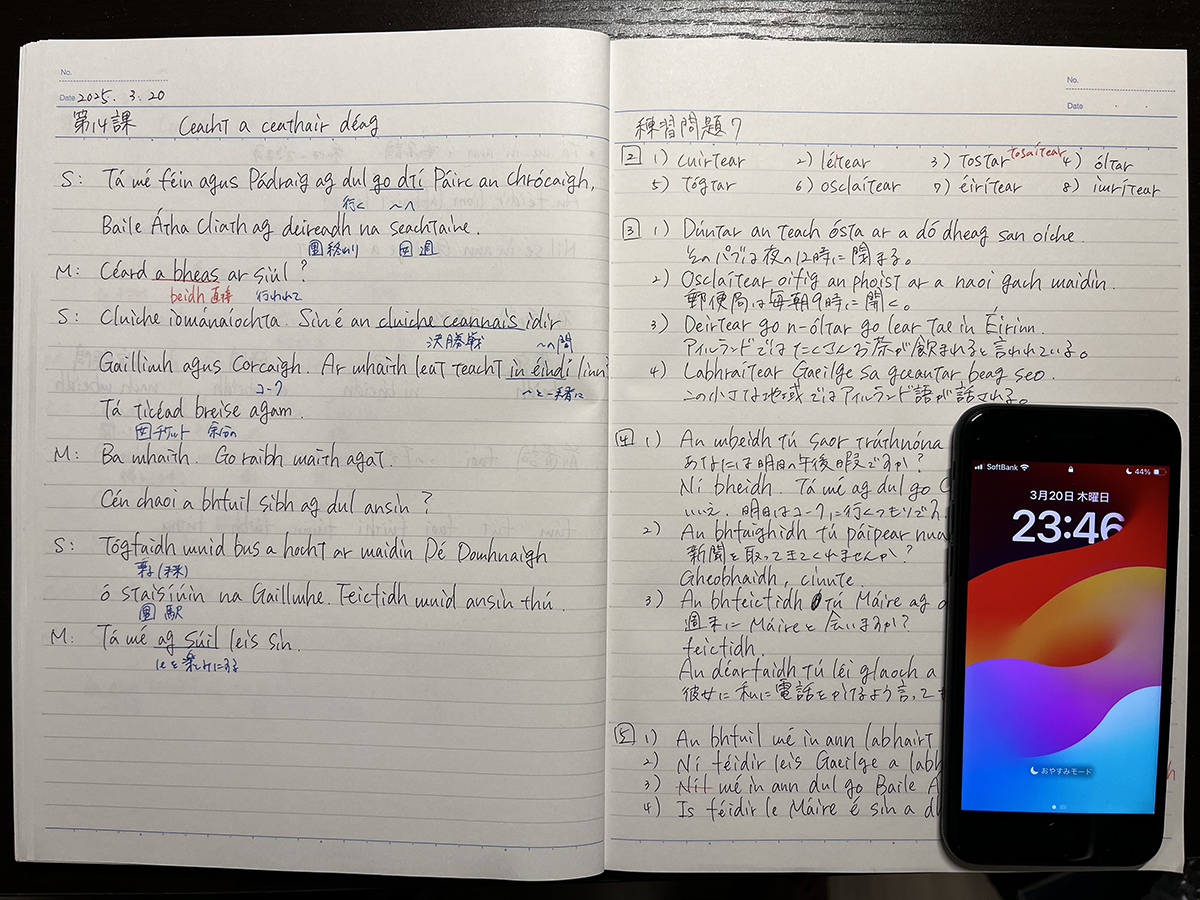 No.
Date 2025. 3. 20
第14課 Ceacht a ceathair déag
S: Tá mé féin agus Pádraig ag dul go dtí Páirc an Chrócaigh,
行く ～へ
Baile Átha Cliath ag deireadh na seachtaine.
男 終わり 女 週
M: Céard a bheas ar siúl?
beidh 直接 行われて
S: Cluiche iománaíochta. Sin é an cluiche ceannais idir
決勝戦 ～の間
Gaillimh agus Corcaigh. Ar mhaith leat teacht in éindí linn?
コーク ～と一緒に
Tá ticéad breise agam.
チケット 余分の
M: Ba mhaith. Go raibh maith agat.
Cén chaoi a bhfuil sibh ag dul ansin?
S: Tógfaidh muid bus a hocht ar maidin Dé Domhnaigh
乗る(未来)
ó staisiúin na Gaillmhe. Feicfidh muid ansin thú.
男 駅
M: Tá mé ag súil leis sin.
leを楽しみにする
No.
Date
練習問題 7
2 1) cuirtear 2) léitear 3) tostar tosaítear 4) óltar
5) tógtar 6) osclaítear 7) éirítear 8) imrítear
3 1) Dúntar an teach ósta ar a dó dheag san oíche.
そのパブは夜の12時に閉まる。
2) Osclaítear oifig an phoist ar a naoi gach maidin.
郵便局は毎朝9時に開く。
3) Deirtear go n-óltar go lear tae in Éirinn.
アイルランドではたくさんお茶が飲まれると言われている。
4) Labhraítear Gaeilge sa gceantar beag seo.
この小さな地域ではアイルランド語が話される。
4 1) An mbeidh tú saor tráthnóna
あなたは明日の午後暇ですか?
Ní bheidh. Tá mé ag dul go
いいえ. 明日はコークに行くつもりです
2) An bhfaighidh tú páipear nua
新聞を取って来てくれませんか?
Gheobhaidh, cinnte.
3) An bhfeicfidh tú Máire ag
週末にMáireと会いますか?
feicfidh.
An déarfaidh tú léi glaoch a
彼女に私に電話をかけるよう言って
5 1) An bhfuil mé in ann labhairt
2) Ní féidir leis Gaeilge a labh
3) Níl mé in ann dul go Baile Á
4) Is féidir le Máire é sin a dh
SoftBank 44%
3月20日 木曜日
23:46
おやすみモード